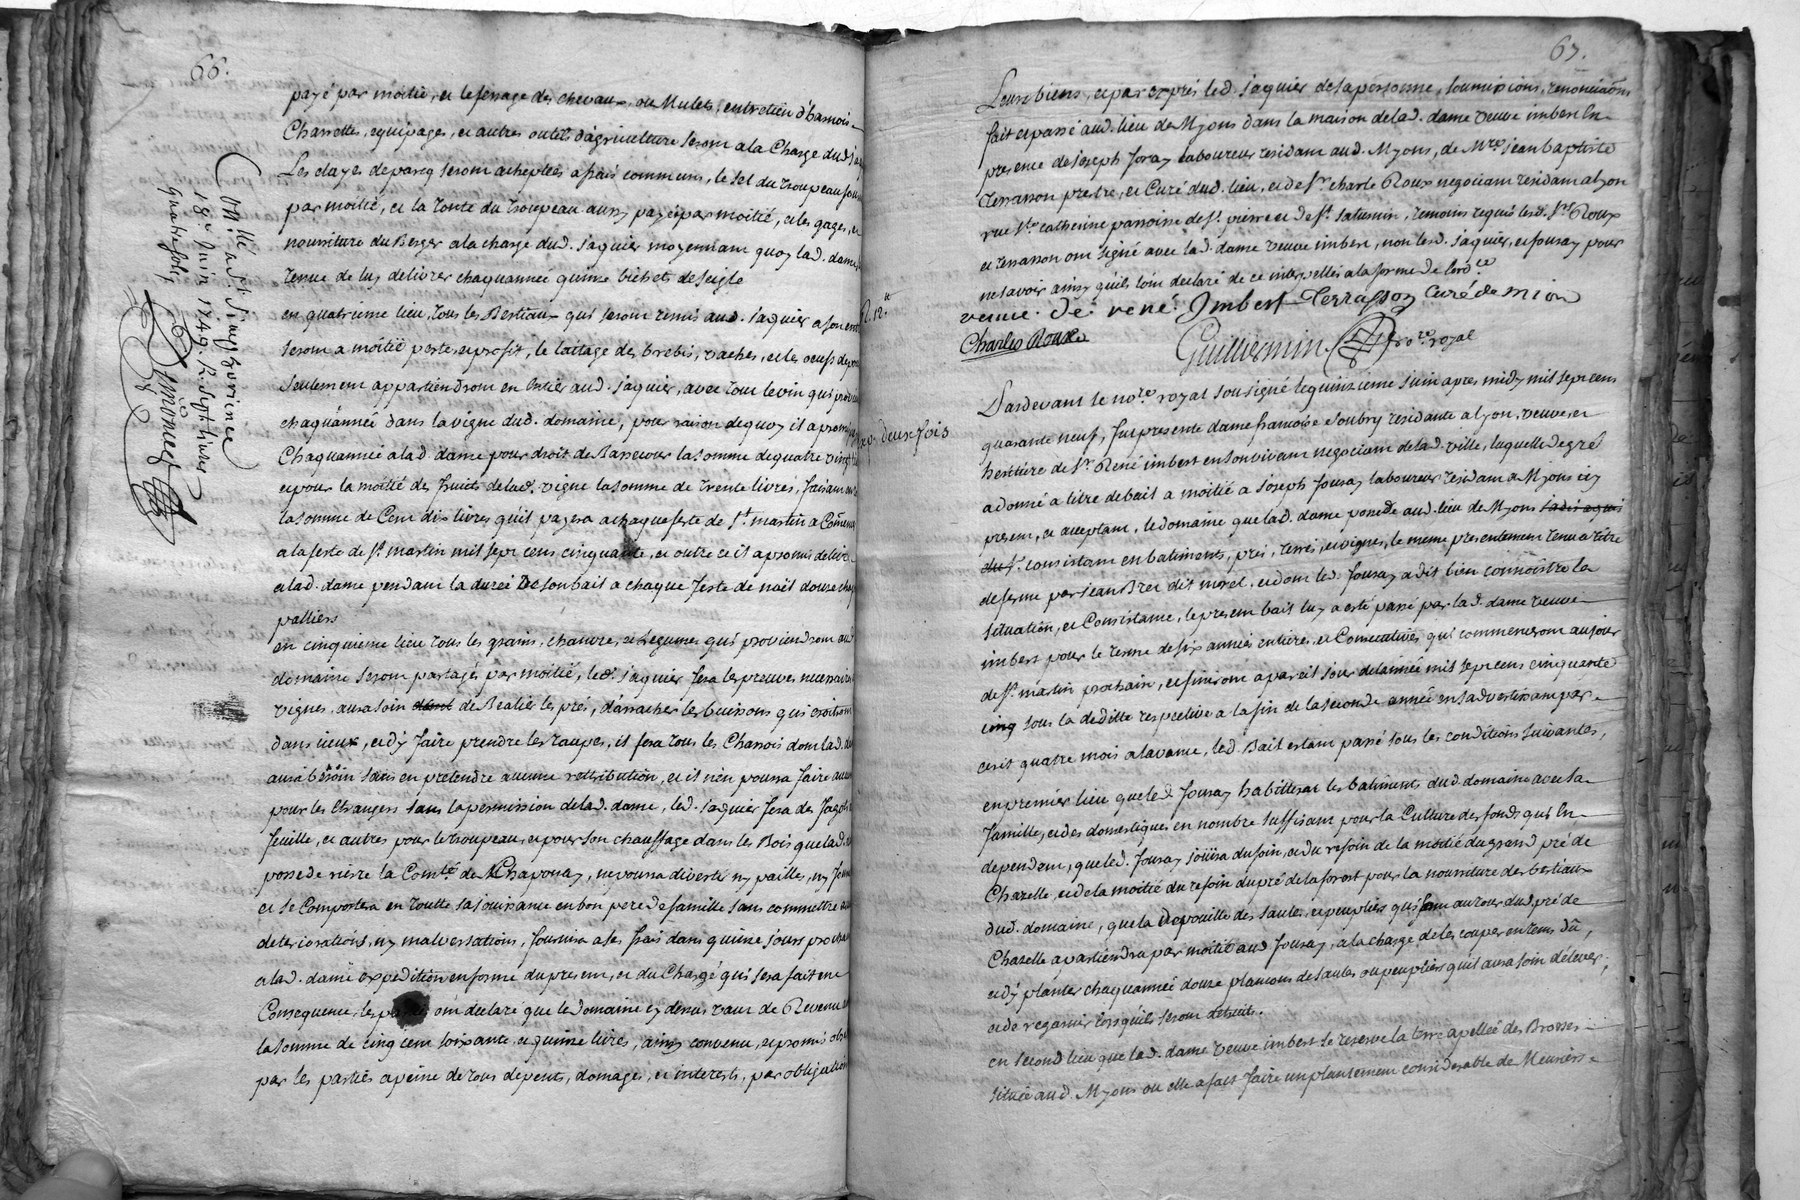 66.
payé par moitié, et le ferrage des chevaux, ou Mulets, entretien d'harnois
Charrettes, equipages, et autres outils d'agriculture seront a la Charge dud. Ja
Les clayes de parcq seront acheptées a frais communs, le sel du troupeau
par moitié, et la tonte du troupeau aussy payée par moitié, et les gages, et
nourriture du Berger a la charge dud. Jaquier moyennant quoy lad. dame
tenue de luy delivrer chaqu'année quinze bichets de seigle
en quatrieme lieu, tous les Bestiaux qui seront remis aud. Jaquier a son
seront a moitié perte et profit, le laitage des brebis, vaches, et les oeufs de
seulement appartiendront en entier aud. Jaquier, avec tout le vin qui
chaqu'année dans la vigne dud. domaine, pour raison de quoy il a promis
Chaqu'année a lad. dame pour droit de Bassecour la somme de quatre vingt
et pour la moitié des fruits de lad. vigne la somme de trente livres, faisant
la somme de Cent dix livres qu'il payera a chaque feste de St. martin a
a la feste de St. martin mil sept cens cinquante, et outre ce il a promis delivrer
a lad. dame pendant la durée de son bail a chaque feste de nail douze
palliers
en cinquieme lieu tous les grains, chanvre, et Legumes qui proviendront aud
domaine seront partagés par moitié, led. Jaquier fera les preuves necessaires
vignes aura soin de Realiér les prés, d'arracher les buissons qui
dans iceux, et d'y faire prendre les taupes, il fera tous les Charrois dont lad.
aura besoin sans en pretendre aucune rettribution, et il n'en pourra faire
pour les Etrangers sans la permission de lad. dame, led. Jaquier fera des fagots
feuille, et autres pour le troupeau, et pour son chauffage dans les Bois que lad.
possede riere la Com.té de Chaponay, ne pourra divertir ny pailles, ny
et se Comportera en toutte sa jouissance en bon pere de famille sans commettre
deteriorations, ny malversations, fournira a ses frais dans quinze jours
a lad. dame expedition en forme du present, et du Chargé qui sera fait en
Consequence, les ont declaré que le domaine cy dessus vaut de Revenu
la somme de cinq cent soixante et quinze livres, ainsy convenu, et promis
par les parties a peine de tous depents, domages, et interests, par obligation
18e Juin 1749.
quatre sols
67.
Leurs biens, et par exprés led. Jaquier de sa personne, soumissions, renonciaõns
fait et passé aud. lieu de Myons dans la maison de lad. dame veuve imbert En
presence de Joseph Joray laboureur residant aud. Myons, de Mre Jean baptiste
Terrasson prestre, et Curé dud. lieu, et de Sr. charle Roux negociant residant a lyon
rue Ste catherine parroisse de St. pierre et de St. saturnin, temoins requis lesd. Srs Roux
et terrasson ont signé avec lad. dame veuve imbert, non lesd. Jaquier, et Jouray pour
ne savoir ainsy qu'ils l'ont declaré de ce interpellés a la forme de l'ordce
veuve. de rené Imbert Terrasson Curé de mion
Charles Roux
Guillermin no.re royal
Pardevant le no.re royal soussigné le quinzieme Juin apres midy mil sept cens
quarante neuf, fut presente dame francoise soubry residante a lyon, veuve, et
heritiere de Sr. René imbert en son vivant negociant de lad. ville, laquelle de gré
a donné a titre de bail a moitié a Joseph Jouray laboureur residant a Myons icy
present, et acceptant, le domaine que lad. dame possede aud. lieu de Myons
consistant en batiments, prés, terres, et vignes, le meme presentement tenu a titre
de ferme par Jean Brer dit morel, et dont led. Jouray a dit bien connoistre la
situation, et Consistance, le present bail luy a esté passé par lad. dame veuve
imbert pour le terme de six années entieres, et Consecutives qui commenceront au jour
de St. martin prochain, et finiront a pareil jour de l'année mil sept cens cinquante
cinq sous la deditte respective a la fin de la seconde année en s'advertissant par
ecrit quatre mois a l'avance, led. Bail estant passé sous les conditions suivantes,
en premier lieu que led. Jouray habittera les batiments dud. domaine avec sa
famille, et des domestiques en nombre suffisant pour la Culture des fonds qui En
dependent, que led. Jouray joüira du foin, et du refoin de la moitié du grand pré de
Chazelle, et de la moitié du refoin du pré de la forest pour la nourriture des bestiaux
dud. domaine, que la depouille des saules, et peupliers qui sont autour dud. pré de
Chazelle apartiendra par moitié aud. Jouray, a la charge de les couper en tems dû,
et d'y planter chaqu'année douze plançons de saules ou peupliers qu'il aura soin d'elever,
et de regarnir lorsqu'ils seront detruits.
en second lieu que lad. dame veuve imbert se reserve la terre apellée des Brosses
située aud. Myons ou elle a fait faire un plantement considerable de Meuriers